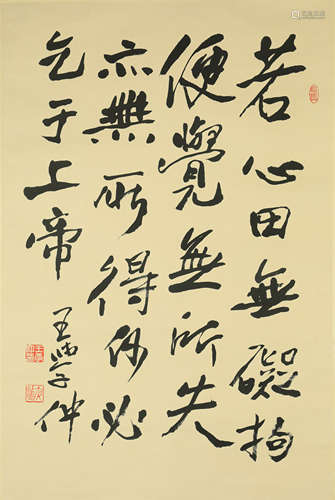 若心田無礙拘
便覺無所失
亦無所得何必
乞于上帝
王學仲